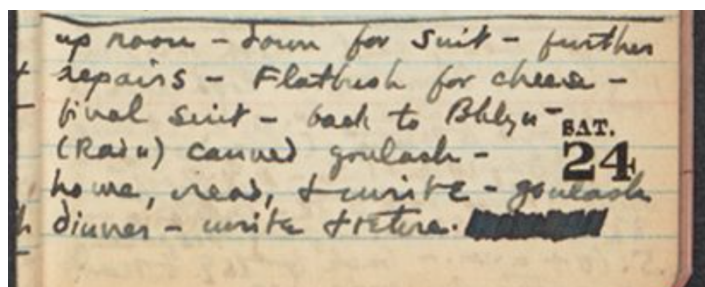 up noon – down for suit – further
repairs – Flatbush for cheese –
final suit – back to Bklyn –
SAT.
(Rain) canned goulash –
24
home, read, & write – goulash
dinner – write & retire.